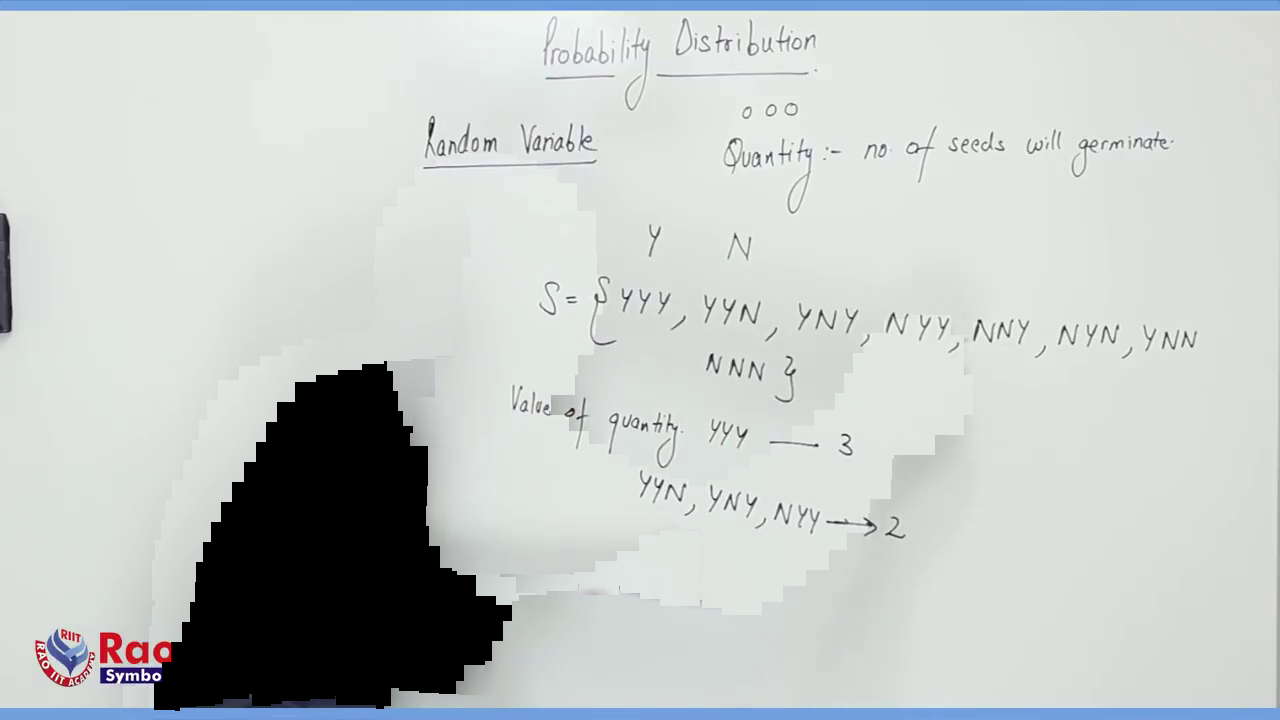 Probability Distribution
Random Variable
Quantity :- no. of seeds will germinate.
Y N
S = { YYY, YYN, YNY, NYY, NNY, NYN, YNN
NNN }
Value of quantity. YYY — 3
YYN, YNY, NYY → 2
RIIT
RAO IIT ACADEMY
Rao
Symbo